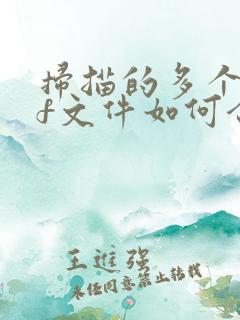 掃描的多个
f文件如何合
王進强
未经同意禁止转载